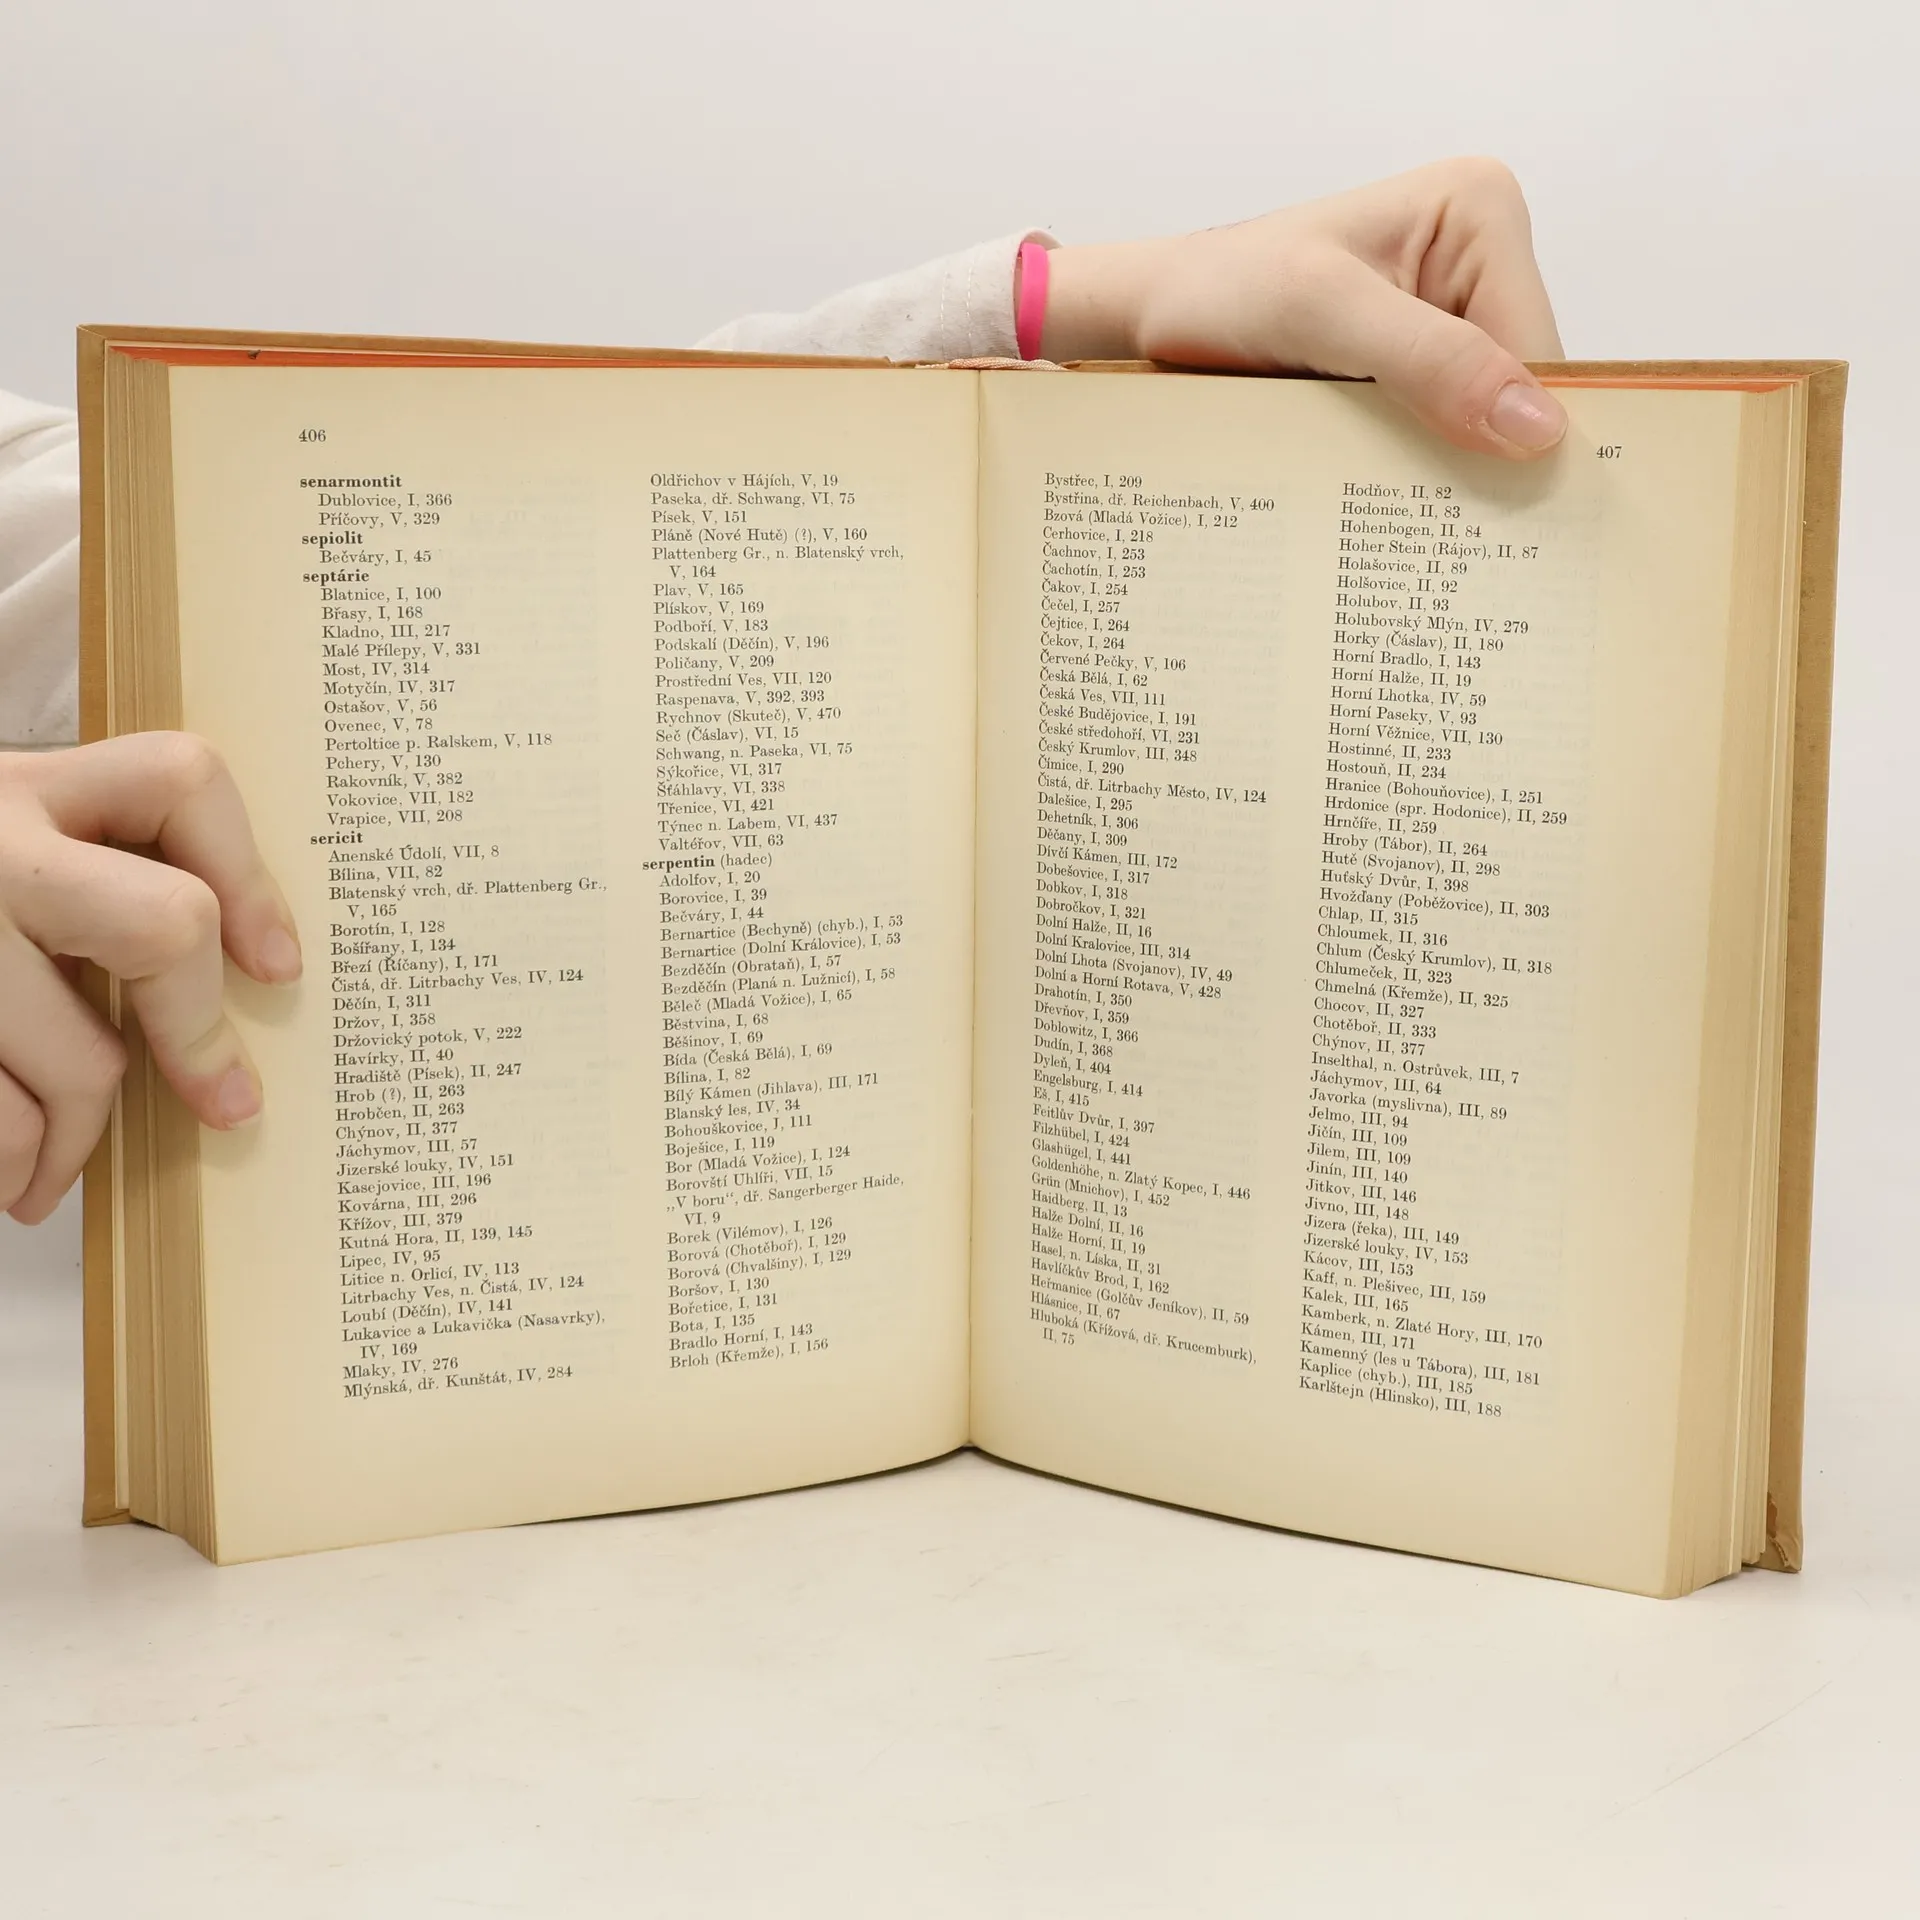 406
senarmontit
Dublovice, I, 366
Příčovy, V, 329
sepiolit
Bečváry, I, 45
septárie
Blatnice, I, 100
Břasy, I, 168
Kladno, III, 217
Malé Přílepy, V, 331
Most, IV, 314
Motyčín, IV, 317
Ostašov, V, 56
Ovenec, V, 78
Pertoltice p. Ralskem, V, 118
Pchery, V, 130
Rakovník, V, 382
Vokovice, VII, 182
Vrapice, VII, 208
sericit
Anenské Údolí, VII, 8
Bílina, VII, 82
Blatenský vrch, dř. Plattenberg Gr.,
V, 165
Borotín, I, 128
Bošířany, I, 134
Březí (Říčany), I, 171
Čistá, dř. Litrbachy Ves, IV, 124
Děčín, I, 311
Držov, I, 358
Držovický potok, V, 222
Havírky, II, 40
Hradiště (Písek), II, 247
Hrob (?), II, 263
Hrobčen, II, 263
Chýnov, II, 377
Jáchymov, III, 57
Jizerské louky, IV, 151
Kasejovice, III, 196
Kovárna, III, 296
Křížov, III, 379
Kutná Hora, II, 139, 145
Lipec, IV, 95
Litice n. Orlicí, IV, 113
Litrbachy Ves, n. Čistá, IV, 124
Loubí (Děčín), IV, 141
Lukavice a Lukavička (Nasavrky),
IV, 169
Mlaky, IV, 276
Mlýnská, dř. Kunštát, IV, 284
Oldřichov v Hájích, V, 19
Paseka, dř. Schwang, VI, 75
Písek, V, 151
Pláně (Nové Hutě) (?), V, 160
Plattenberg Gr., n. Blatenský vrch,
V, 164
Plav, V, 165
Plískov, V, 169
Podboří, V, 183
Podskalí (Děčín), V, 196
Poličany, V, 209
Prostřední Ves, VII, 120
Raspenava, V, 392, 393
Rychnov (Skuteč), V, 470
Seč (Čáslav), VI, 15
Schwang, n. Paseka, VI, 75
Sýkořice, VI, 317
Šťáhlavy, VI, 338
Třenice, VI, 421
Týnec n. Labem, VI, 437
Valtéřov, VII, 63
serpentin (hadec)
Adolfov, I, 20
Borovice, I, 39
Bečváry, I, 44
Bernartice (Bechyně) (chyb.), I, 53
Bernartice (Dolní Královice), I, 53
Bezděčín (Obrataň), I, 57
Bezděčín (Planá n. Lužnicí), I, 58
Běleč (Mladá Vožice), I, 65
Běstvina, I, 68
Běšinov, I, 69
Bída (Česká Bělá), I, 69
Bílina, I, 82
Bílý Kámen (Jihlava), III, 171
Blanský les, IV, 34
Bohouškovice, J, 111
Boješice, I, 119
Bor (Mladá Vožice), I, 124
Borovští Uhlíři, VII, 15
„V boru“, dř. Sangerberger Haide,
VI, 9
Borek (Vilémov), I, 126
Borová (Chotěboř), I, 129
Borová (Chvalšiny), I, 129
Boršov, I, 130
Bořetice, I, 131
Bota, I, 135
Bradlo Horní, I, 143
Brloh (Křemže), I, 156
407
Bystřec, I, 209
Bystřina, dř. Reichenbach, V, 400
Bzová (Mladá Vožice), I, 212
Cerhovice, I, 218
Čachnov, I, 253
Čachotín, I, 253
Čakov, I, 254
Čečel, I, 257
Čejtice, I, 264
Čekov, I, 264
Červené Pečky, V, 106
Česká Bělá, I, 62
Česká Ves, VII, 111
České Budějovice, I, 191
České středohoří, VI, 231
Český Krumlov, III, 348
Čímice, I, 290
Čistá, dř. Litrbachy Město, IV, 124
Dalešice, I, 295
Dehetník, I, 306
Děčany, I, 309
Dívčí Kámen, III, 172
Dobešovice, I, 317
Dobkov, I, 318
Dobročkov, I, 321
Dolní Halže, II, 16
Dolní Kralovice, III, 314
Dolní Lhota (Svojanov), IV, 49
Dolní a Horní Rotava, V, 428
Drahotín, I, 350
Dřevňov, I, 359
Doblowitz, I, 366
Dudín, I, 368
Dyleň, I, 404
Engelsburg, I, 414
Eš, I, 415
Feitlův Dvůr, I, 397
Filzhübel, I, 424
Glashügel, I, 441
Goldenhöhe, n. Zlatý Kopec, I, 446
Grün (Mnichov), I, 452
Haidberg, II, 13
Halže Dolní, II, 16
Halže Horní, II, 19
Hasel, n. Líska, II, 31
Havlíčkův Brod, I, 162
Heřmanice (Golčův Jeníkov), II, 59
Hlásnice, II, 67
Hluboká (Křížová, dř. Krucemburk),
II, 75
Hodňov, II, 82
Hodonice, II, 83
Hohenbogen, II, 84
Hoher Stein (Rájov), II, 87
Holašovice, II, 89
Holšovice, II, 92
Holubov, II, 93
Holubovský Mlýn, IV, 279
Horky (Čáslav), II, 180
Horní Bradlo, I, 143
Horní Halže, II, 19
Horní Lhotka, IV, 59
Horní Paseky, V, 93
Horní Věžnice, VII, 130
Hostinné, II, 233
Hostouň, II, 234
Hranice (Bohouňovice), I, 251
Hrdonice (spr. Hodonice), II, 259
Hrnčíře, II, 259
Hroby (Tábor), II, 264
Hutě (Svojanov), II, 298
Huťský Dvůr, I, 398
Hvožďany (Poběžovice), II, 303
Chlap, II, 315
Chloumek, II, 316
Chlum (Český Krumlov), II, 318
Chlumeček, II, 323
Chmelná (Křemže), II, 325
Chocov, II, 327
Chotěboř, II, 333
Chýnov, II, 377
Inselthal, n. Ostrůvek, III, 7
Jáchymov, III, 64
Javorka (myslivna), III, 89
Jelmo, III, 94
Jičín, III, 109
Jilem, III, 109
Jinín, III, 140
Jitkov, III, 146
Jivno, III, 148
Jizera (řeka), III, 149
Jizerské louky, IV, 153
Kácov, III, 153
Kaff, n. Plešivec, III, 159
Kalek, III, 165
Kamberk, n. Zlaté Hory, III, 170
Kámen, III, 171
Kamenný (les u Tábora), III, 181
Kaplice (chyb.), III, 185
Karlštejn (Hlinsko), III, 188